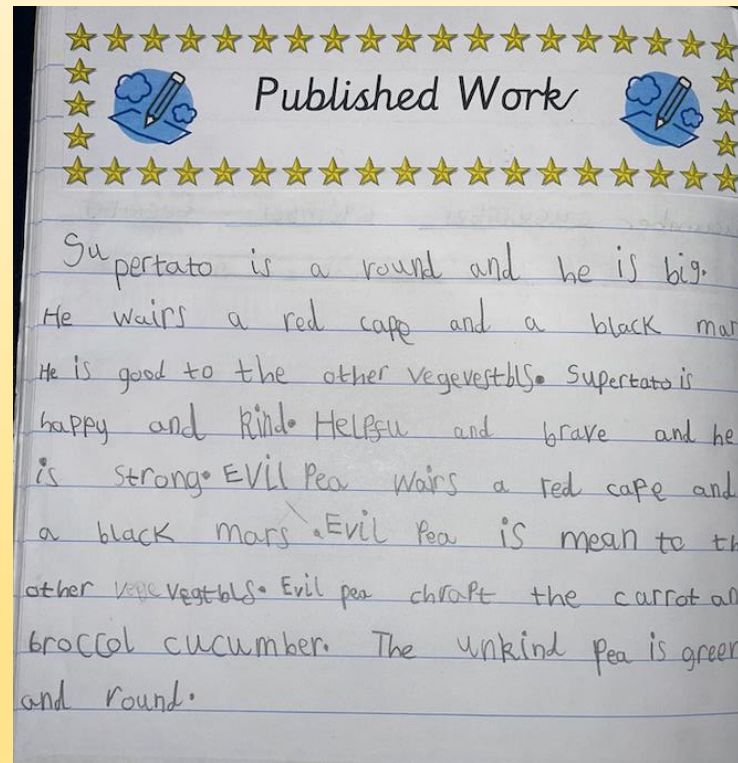 Published Work
Supertato is a round and he is big.
He wairs a red cape and a black mar
He is good to the other vegevestbls. Supertato is
happy and kind. Helpfu and brave and he
is strong. EVil Pea wairs a red cape and
a black mars. Evil Pea is mean to th
other vegtbls. Evil pea chrapt the carrot an
broccol cucumber. The unkind pea is green
and round.